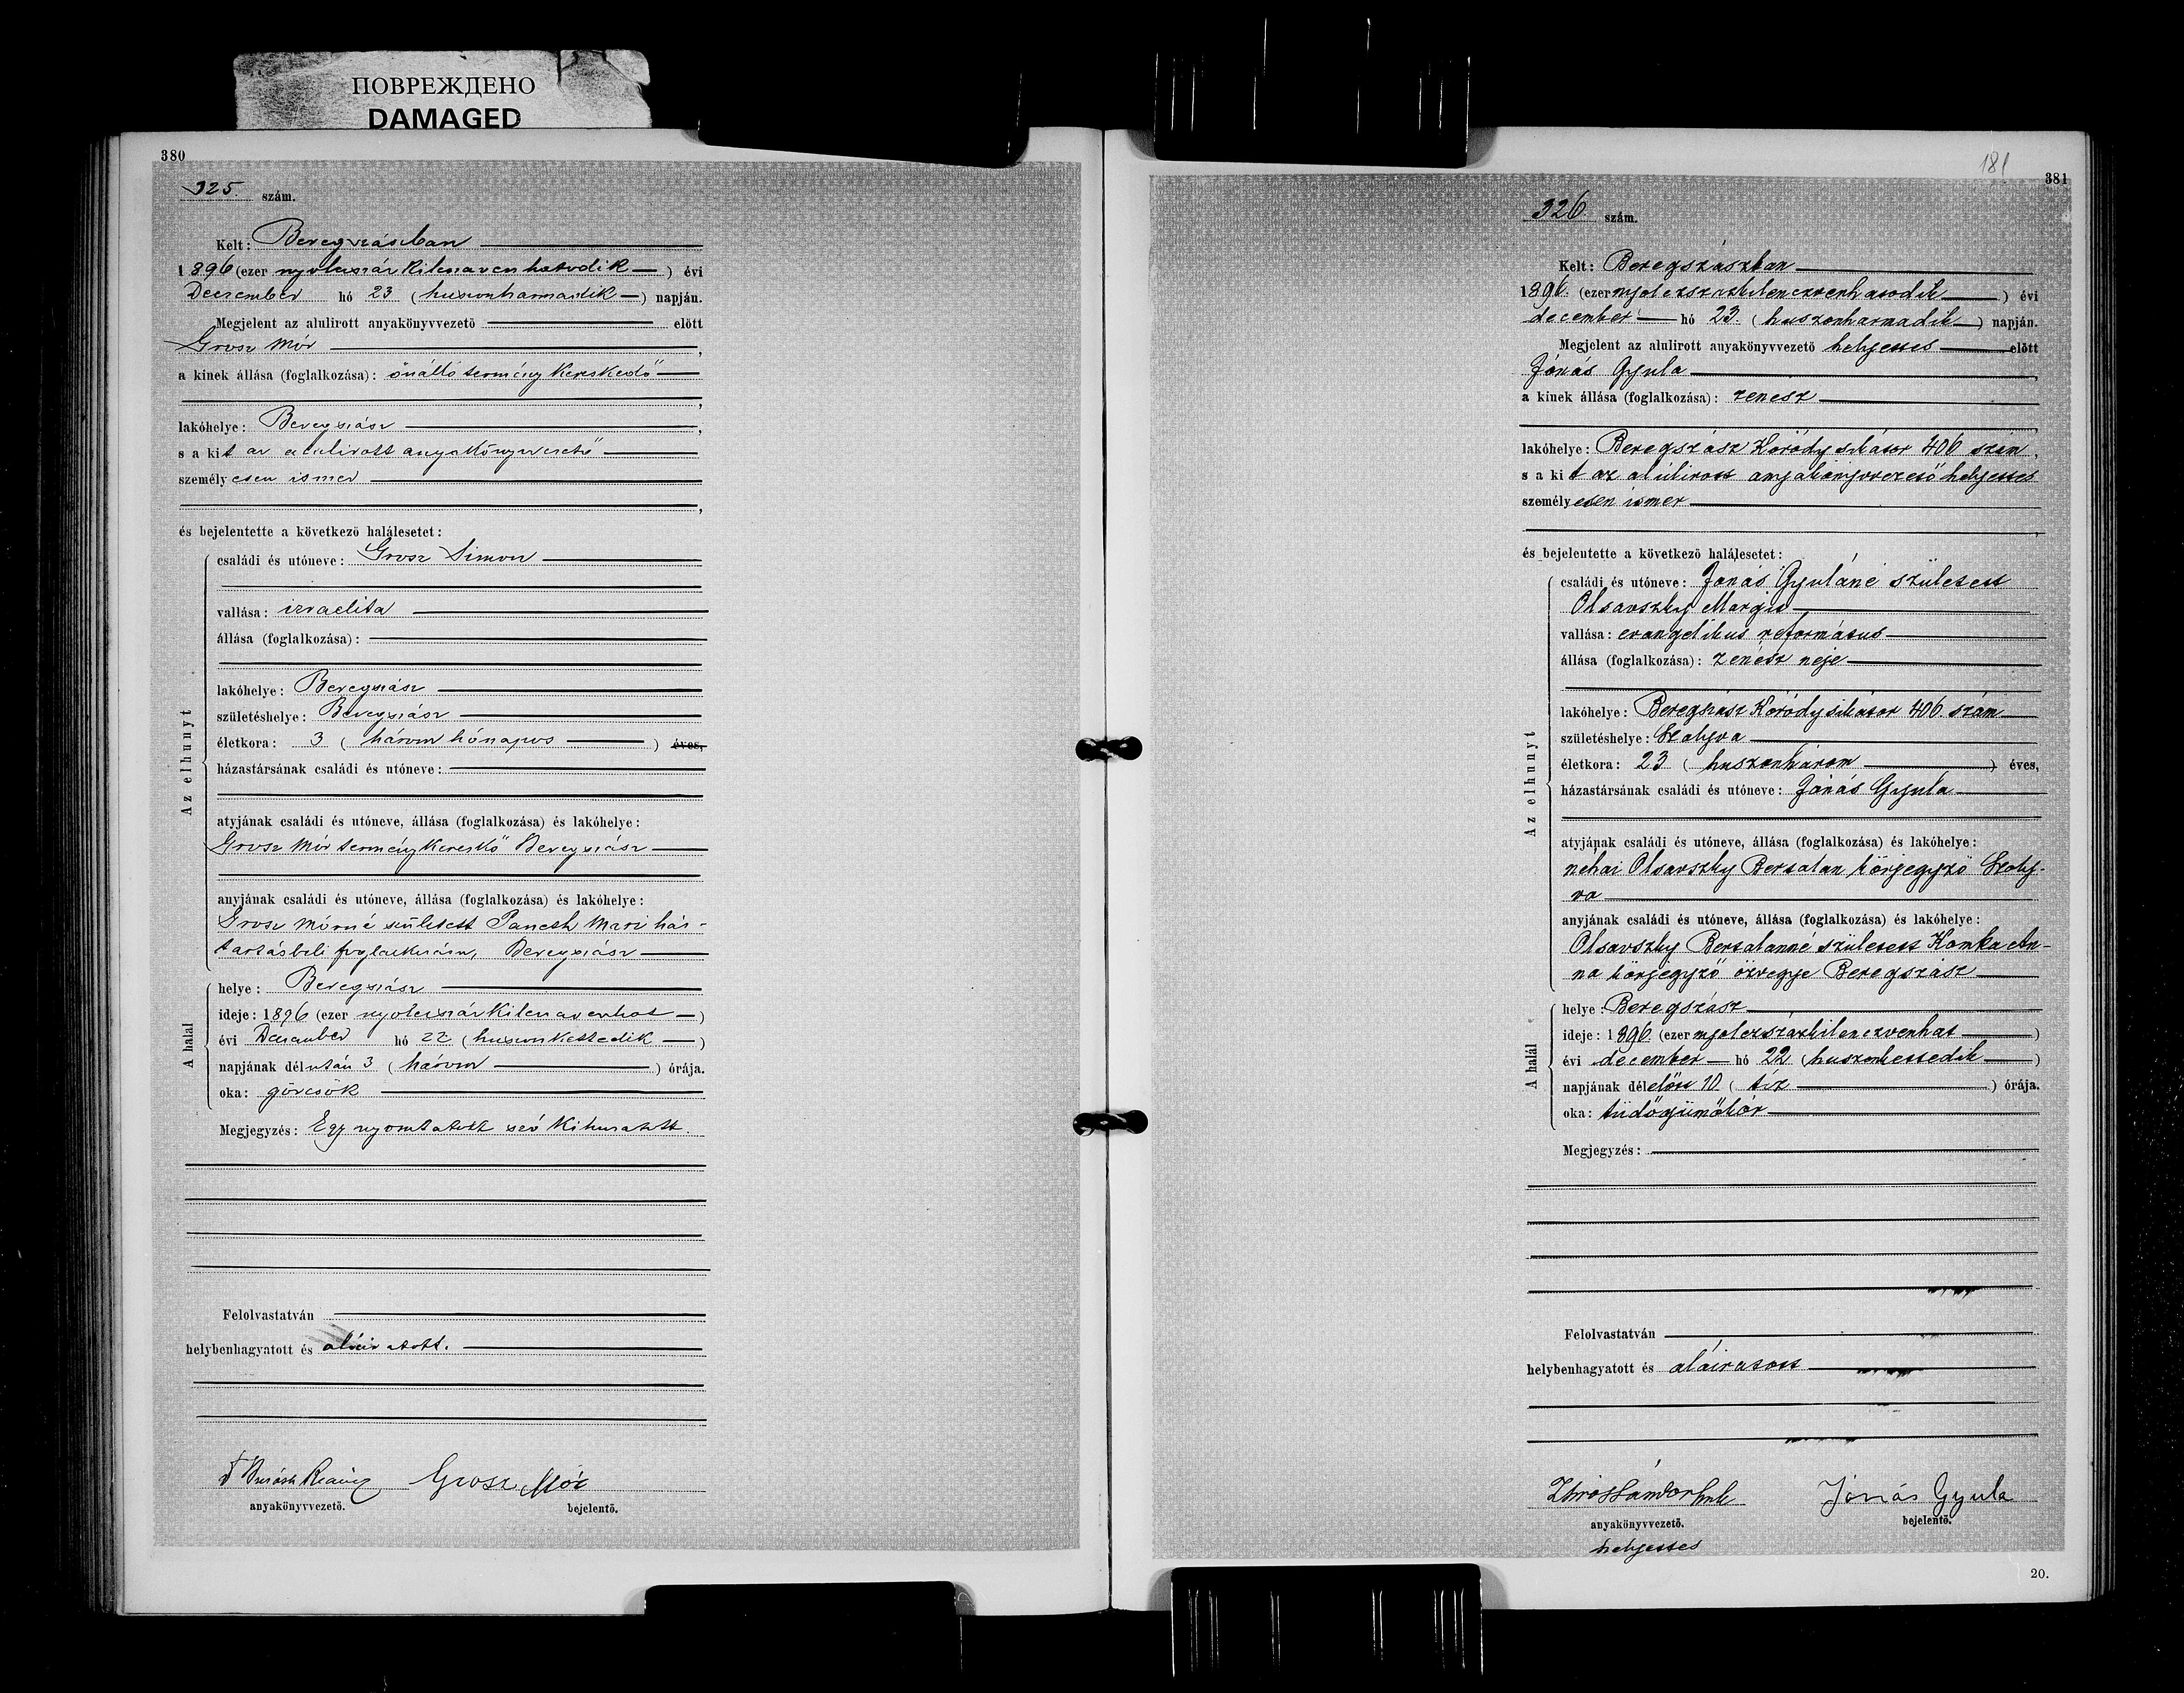 ПОВРЕЖДЕНО
DAMAGED
380
325. szám.
Kelt: Beregszászban
1896 (ezer nyolczszáz kilenczven hatodik) évi
Deczember hó 23 (huszonharmadik) napján.
Megjelent az alulirott anyakönyvvezető előtt
Grosz Mór,
a kinek állása (foglalkozása): önálló termény kereskedő
,
lakóhelye: Beregszász,
s a kit az alulirott anyakönyvvezető
személyesen ismer
,
és bejelentette a következő halálesetet:
Az elhunyt
családi és utóneve: Grosz Simon
vallása: izraelita
állása (foglalkozása):
lakóhelye: Beregszász
születéshelye: Beregszász
életkora: 3 (három hónapos) éves,
házastársának családi és utóneve:
atyjának családi és utóneve, állása (foglalkozása) és lakóhelye:
Grosz Mór termény kereskő Beregszász
anyjának családi és utóneve, állása (foglalkozása) és lakóhelye:
Grosz Mórné született Paneth Mari ház-
tartásbeli foglalkozású, Beregszász
A halál
helye: Beregszász
ideje: 1896 (ezer nyolczszáz kilenczvenhat)
évi Deczember hó 22 (huszonkettedik)
napjának délután 3 (három) órája.
oka: görcsök
Megjegyzés: Egy nyomtatott szó kihuzatott.
Felolvastatván
helybenhagyatott és aláiratott.
Grosz Mór
anyakönyvvezető. bejelentő.
181
381
326. szám.
Kelt: Beregszászban
1896. (ezer nyolczszázkilenczvenhatodik) évi
december hó 23. (huszonharmadik) napján.
Megjelent az alulirott anyakönyvvezető helyettes előtt
Jónás Gyula,
a kinek állása (foglalkozása): zenész
,
lakóhelye: Beregszász Koródy sikátor 406 szám,
s a kit az alúlirott anyakönyvvezető helyettes
személyesen ismer
,
és bejelentette a következő halálesetet:
Az elhunyt
családi és utóneve: Jónás Gyuláné született
Olsavszky Margit
vallása: evangélikus református
állása (foglalkozása): zenész neje
lakóhelye: Beregszász Koródy sikátor 406. szám
születéshelye: Szolyva
életkora: 23 (huszonhárom) éves,
házastársának családi és utóneve: Jónás Gyula
atyjának családi és utóneve, állása (foglalkozása) és lakóhelye:
néhai Olsavszky Bertalan körjegyző Szoly-
va
anyjának családi és utóneve, állása (foglalkozása) és lakóhelye:
Olsavszky Bertalanné született Komka An-
na körjegyző özvegye Beregszász
A halál
helye: Beregszász
ideje: 1896. (ezer nyolczszázkilenczvenhat)
évi december hó 22. (huszonkettedik)
napjának délelött 10 (tíz) órája.
oka: tüdőgümőkór
Megjegyzés:
Felolvastatván
helybenhagyatott és aláiratott
Jónás Gyula
anyakönyvvezető. bejelentő.
helyettes
20.